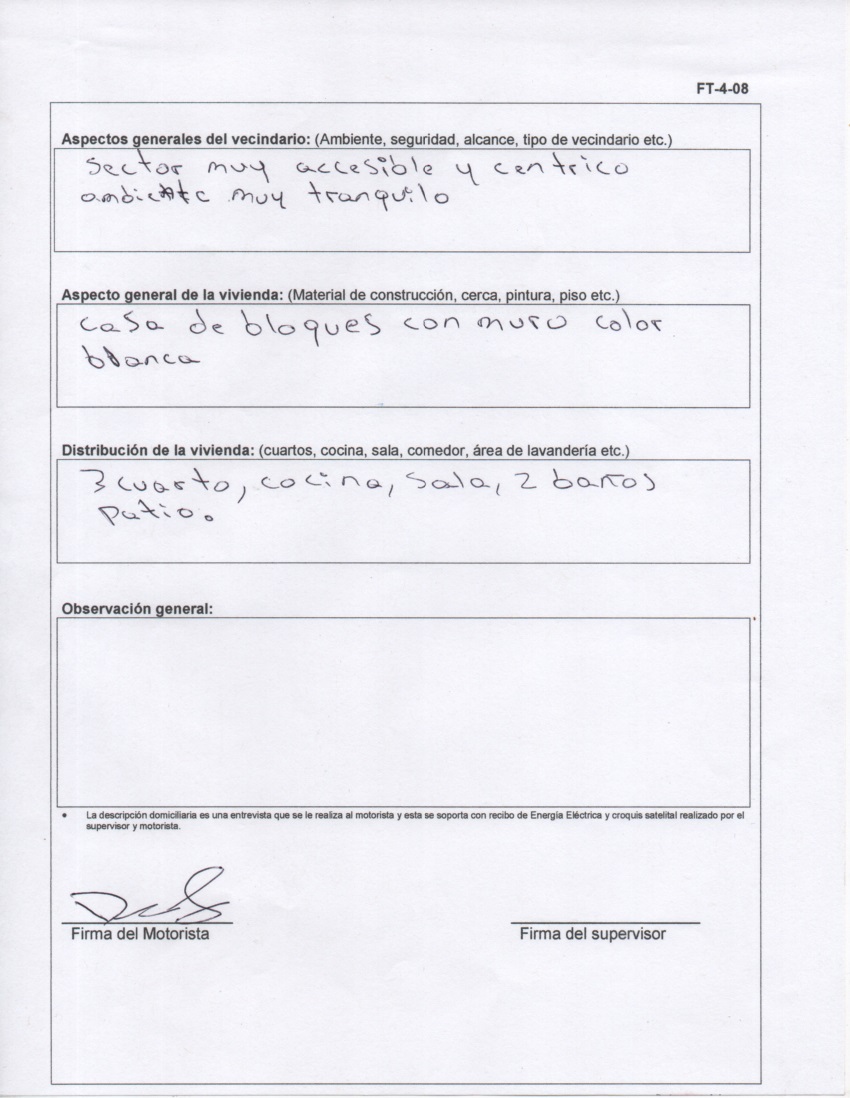 FT-4-08
Aspectos generales del vecindario: (Ambiente, seguridad, alcance, tipo de vecindario etc.)
Sector muy accesible y centrico
ambiente muy tranquilo
Aspecto general de la vivienda: (Material de construcción, cerca, pintura, piso etc.)
casa de bloques con muro color
blanca
Distribución de la vivienda: (cuartos, cocina, sala, comedor, área de lavandería etc.)
3 cuarto, cocina, sala, 2 baños
patio.
Observación general:
• La descripción domiciliaria es una entrevista que se le realiza al motorista y esta se soporta con recibo de Energía Eléctrica y croquis satelital realizado por el
supervisor y motorista.
Firma del Motorista Firma del supervisor